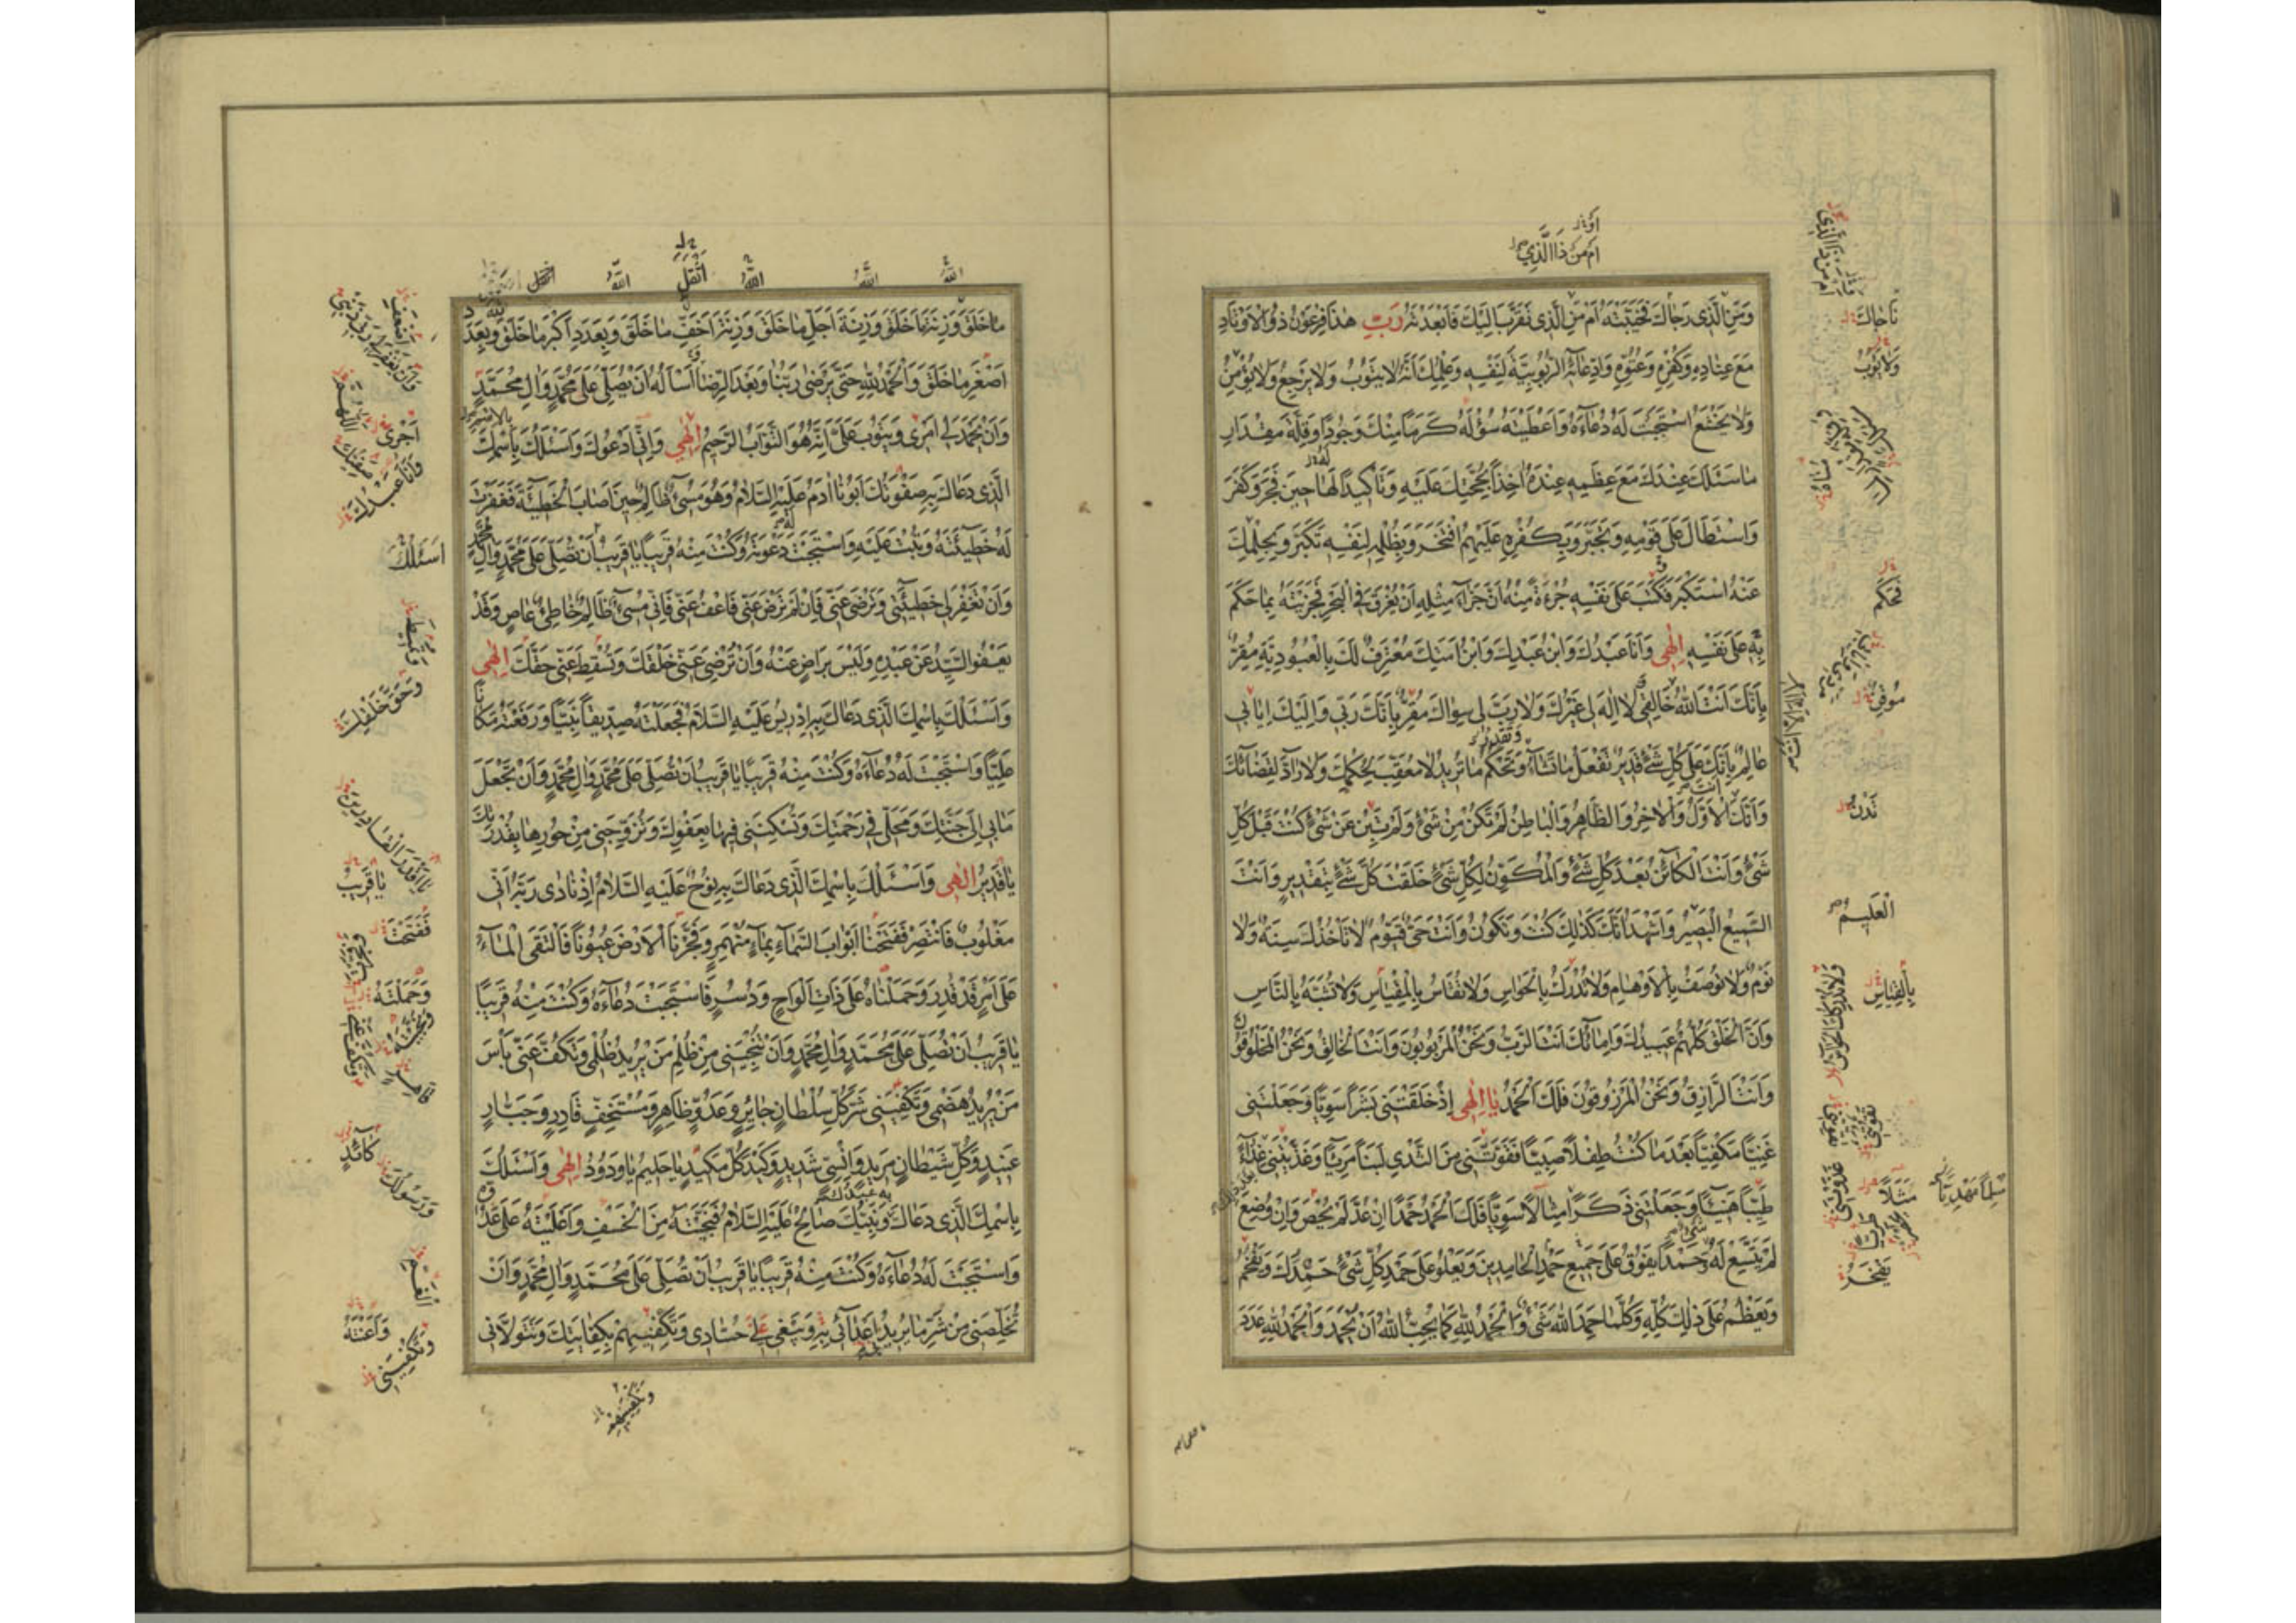 اوَ
اَم مَن ذَا الَّذي
وَمَنِ الَّذي رَجاكَ فَخَيَّبْتَهُ اَم مَنِ الَّذي تَقَرَّبَ اِلَيْكَ فَاَبْعَدْتَهُ رَبِّ هذا فِرْعَوْنُ ذُو الاَوْتادِ
مَعَ عِنادِهِ وَكُفْرِهِ وَعُتُوِّهِ وَادِّعائِهِ الرُّبُوبِيَّةَ لِنَفْسِهِ وَعِلْمِكَ اَنَّهُ لا يَتُوبُ وَلا يَرْجِعُ وَلا يُؤْمِنُ
وَلا يَخْشَعُ اسْتَجَبْتَ لَهُ دُعاءَهُ وَاَعْطَيْتَهُ سُؤْلَهُ كَرَماً مِنْكَ وَجُوداً وَقِلَّةَ مِقْدارِ
ما سَئَلَكَ عِنْدَكَ مَعَ عِظَمِهِ عِنْدَهُ اَخْذاً بِحُجَّتِكَ عَلَيْهِ وَتَأْكيداً لَها حينَ فَجَرَ وَكَفَرَ
وَاسْتَطالَ عَلى قَوْمِهِ وَتَجَبَّرَ وَبِكُفْرِهِ عَلَيْهِمُ افْتَخَرَ وَبِظُلْمِهِ لِنَفْسِهِ تَكَبَّرَ وَبِحِلْمِكَ
عَنْهُ اسْتَكْبَرَ فَكَتَبَ عَلى نَفْسِهِ جُرْءَةً مِنْهُ اَنَّ جَزاءَ مِثْلِهِ اَنْ يُغْرَقَ فِي الْبَحْرِ فَجَزَيْتَهُ بِما حَكَمَ
بِهِ عَلى نَفْسِهِ اِلهي وَاَنَا عَبْدُكَ وَابْنُ عَبْدِكَ وَابْنُ اَمَتِكَ مُعْتَرِفٌ لَكَ بِالْعُبُودِيَّةِ مُقِرٌّ
بِاَنَّكَ اَنْتَ اللهُ خالِقي لا اِلهَ لي غَيْرُكَ وَلا رَبَّ لي سِواكَ مُقِرٌّ بِاَنَّكَ رَبّي وَاِلَيْكَ اِيابي
عالِمٌ بِاَنَّكَ عَلى كُلِّ شَيْءٍ قَديرٌ تَفْعَلُ ما تَشاءُ وَتَحْكُمُ ما تُريدُ لا مُعَقِّبَ لِحُكْمِكَ وَلا رادَّ لِقَضائِكَ
وَاَنَّكَ الاَوَّلُ وَالاخِرُ وَالظّاهِرُ وَالْباطِنُ لَمْ تَكُنْ مِنْ شَيْءٍ وَلَمْ تَبِنْ عَنْ شَيْءٍ كُنْتَ قَبْلَ كُلِّ
شَيْءٍ وَاَنْتَ الْكائِنُ بَعْدَ كُلِّ شَيْءٍ وَالْمُكَوِّنُ لِكُلِّ شَيْءٍ خَلَقْتَ كُلَّ شَيْءٍ بِتَقْديرٍ وَاَنْتَ
السَّميعُ الْبَصيرُ وَاَشْهَدُ اَنَّكَ كَذلِكَ كُنْتَ وَتَكُونُ وَاَنْتَ حَيٌّ قَيُّومٌ لا تَأْخُذُكَ سِنَةٌ وَلا
نَوْمٌ وَلا تُوصَفُ بِالاَوْهامِ وَلا تُدْرَكُ بِالْحَواسِّ وَلا تُقاسُ بِالْمِقْياسِ وَلا تُشَبَّهُ بِالنّاسِ
وَاَنَّ الْخَلْقَ كُلَّهُمْ عَبيدُكَ وَاِماؤُكَ اَنْتَ الرَّبُّ وَنَحْنُ الْمَرْبُوبُونَ وَاَنْتَ الْخالِقُ وَنَحْنُ الْمَخْلُوقُونَ
وَاَنْتَ الرّازِقُ وَنَحْنُ الْمَرْزُوقُونَ فَلَكَ الْحَمْدُ يا اِلهي اِذْ خَلَقْتَني بَشَراً سَوِيّاً وَجَعَلْتَني
غَنِيّاً مَكْفِيّاً بَعْدَ ما كُنْتُ طِفْلاً صَبِيّاً فَقَوَّتَّني مِنَ الثَّدْيِ لَبَناً مَريئاً وَغَذَّيْتَني غِذاءً
طَيِّباً هَنيئاً وَجَعَلْتَني ذَكَراً مِثالاً سَوِيّاً فَلَكَ الْحَمْدُ حَمْداً اِنْ عُدَّ لَمْ يُحْصَ وَاِنْ وُضِعَ
لَمْ يَتَّسِعْ لَهُ حَمْداً يَفُوقُ عَلى جَميعِ حَمْدِ الْحامِدينَ وَيَعْلُو عَلى حَمْدِ كُلِّ شَيْءٍ حَمِدَكَ وَيَفْخُمُ
وَيَعْظُمُ عَلى ذلِكَ كُلِّهِ وَكُلَّما حَمِدَ اللهَ شَيْءٌ وَالْحَمْدُ للهِ كَما يُحِبُّ اللهُ اَنْ يُحْمَدَ وَالْحَمْدُ للهِ عَدَدَ
ناجاكَ
وَلا يَؤُبُ
فَحَكَمَ
مُوقِنٌ
تَدْنُ
الْعَليمُ
بِالْقِياسِ
مَثَلاً
يَفْخَرُ
اللهُ
اللهُ
اللهُ
اَثْقَلِ
اللهُ
ما خَلَقَ وَزِنَةَ ما خَلَقَ وَزِنَةَ اَجَلِّ ما خَلَقَ وَزِنَةَ اَخَفِّ ما خَلَقَ وَبِعَدَدِ اَكْبَرِ ما خَلَقَ وَبِعَدَدِ
اَصْغَرِ ما خَلَقَ وَالْحَمْدُ للهِ حَتّى يَرْضى رَبُّنا وَبَعْدَ الرِّضا اَسْأَلُهُ اَنْ يُصَلِّيَ عَلى مُحَمَّدٍ وَالِ مُحَمَّدٍ
وَاَنْ يَحْمَدَ لي اَمْري وَيَتُوبَ عَلَيَّ اِنَّهُ هُوَ التَّوّابُ الرَّحيمُ اِلهي وَاِنّي اَدْعُوكَ وَاَسْئَلُكَ بِاسْمِكَ
الَّذي دَعاكَ بِهِ صَفْوَتُكَ اَبُونا ادَمُ عَلَيْهِ السَّلامُ وَهُوَ مُسيءٌ ظالِمٌ حينَ اَصابَ الْخَطيئَةَ فَغَفَرْتَ
لَهُ خَطيئَتَهُ وَتُبْتَ عَلَيْهِ وَاسْتَجَبْتَ دَعْوَتَهُ وَكُنْتَ مِنْهُ قَريباً يا قَريبُ اَنْ تُصَلِّيَ عَلى مُحَمَّدٍ وَالِ مُحَمَّدٍ
وَاَنْ تَغْفِرَ لي خَطيئَتي وَتَرْضى عَنّي فَاِنْ لَمْ تَرْضَ عَنّي فَاعْفُ عَنّي فَاِنّي مُسيءٌ ظالِمٌ خاطِئٌ عاصٍ وَقَدْ
يَعْفُو السَّيِّدُ عَنْ عَبْدِهِ وَلَيْسَ بِراضٍ عَنْهُ وَاَنْ تُرْضِيَ عَنّي خَلْقَكَ وَتُسْقِطَ عَنّي حَقَّكَ اِلهي
وَاَسْئَلُكَ بِاسْمِكَ الَّذي دَعاكَ بِهِ اِدْريسُ عَلَيْهِ السَّلامُ فَجَعَلْتَهُ صِدّيقاً نَبِيّاً وَرَفَعْتَهُ مَكاناً
عَلِيّاً وَاسْتَجَبْتَ لَهُ دُعاءَهُ وَكُنْتَ مِنْهُ قَريباً يا قَريبُ اَنْ تُصَلِّيَ عَلى مُحَمَّدٍ وَالِ مُحَمَّدٍ وَاَنْ تَجْعَلَ
مَابي اِلى جَنَّتِكَ وَمَحَلّي في رَحْمَتِكَ وَتُسْكِنَني فيها بِعَفْوِكَ وَتُزَوِّجَني مِنْ حُورِها بِقُدْرَتِكَ
يا قَديرُ اِلهي وَاَسْئَلُكَ بِاسْمِكَ الَّذي دَعاكَ بِهِ نُوحٌ عَلَيْهِ السَّلامُ اِذْ نادى رَبَّهُ اَنّي
مَغْلُوبٌ فَانْتَصِرْ فَفَتَحْنا اَبْوابَ السَّماءِ بِماءٍ مُنْهَمِرٍ وَفَجَّرْنَا الاَرْضَ عُيُوناً فَالْتَقَى الْماءُ
عَلى اَمْرٍ قَدْ قُدِرَ وَحَمَلْناهُ عَلى ذاتِ اَلْواحٍ وَدُسُرٍ فَاسْتَجَبْتَ دُعاءَهُ وَكُنْتَ مِنْهُ قَريباً
يا قَريبُ اَنْ تُصَلِّيَ عَلى مُحَمَّدٍ وَالِ مُحَمَّدٍ وَاَنْ تُنْجِيَني مِنْ ظُلْمِ مَنْ يُريدُ ظُلْمي وَتَكُفَّ عَنّي بَأْسَ
مَنْ يُريدُ هَضْمي وَتَكْفِيَني شَرَّ كُلِّ سُلْطانٍ جائِرٍ وَعَدُوٍّ ظاهِرٍ وَمُسْتَخِفٍّ قادِرٍ وَجَبّارٍ
عَنيدٍ وَكُلِّ شَيْطانٍ مَريدٍ وَاِنْسِيٍّ شَديدٍ وَكَيْدِ كُلِّ مَكيدٍ يا حَليمُ يا وَدُودُ اِلهي وَاَسْئَلُكَ
بِاسْمِكَ الَّذي دَعاكَ بِهِ عَبْدُكَ وَنَبِيُّكَ صالِحٌ عَلَيْهِ السَّلامُ فَنَجَّيْتَهُ مِنَ الْخَسْفِ وَاَعْلَيْتَهُ عَلى عَدُوِّهِ
وَاسْتَجَبْتَ لَهُ دُعاءَهُ وَكُنْتَ مِنْهُ قَريباً يا قَريبُ اَنْ تُصَلِّيَ عَلى مُحَمَّدٍ وَالِ مُحَمَّدٍ وَاَنْ
تُخَلِّصَني مِنْ شَرِّ ما يُريدُ اَعْدائي بِهِ وَيَبْغي لي حُسّادي وَتَكْفِيَنيهِمْ بِكِفايَتِكَ وَتَتَوَلاّني
اَللّهُمَّ
وَاَنَا عَبْدُكَ
اَسْئَلُكَ
وَحَقَّ خَلْقِكَ
يا اَقْدَرَ الْقادِرينَ
يا قَريبُ
فَفَتَحْتَ
وَحَمَلْتَهُ
قاهِرٍ
كائِدٍ
وَرَسُولُكَ
وَاَعَنْتَهُ
وَتَكْفِيَني